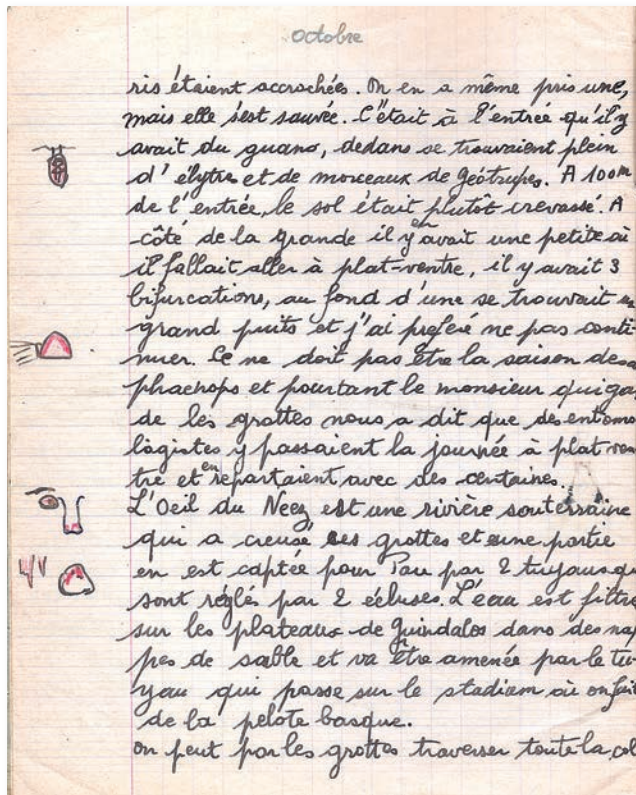 octobre
ris étaient accrochées. On en a même pris une,
mais elle s'est sauvée. C'était à l'entrée qu'il y
avait du guano, dedans se trouvaient plein
d'élytres et de morceaux de géotrupes. A 100m
de l'entrée, le sol était plutôt crevassé. A
côté de la grande il y en avait une petite où
il fallait aller à plat-ventre, il y avait 3
bifurcations, au fond d'une se trouvait u
grand puits et j'ai préféré ne pas conti-
nuer. Ce ne doit pas être la saison des a
phaenops et pourtant le monsieur qui ga
de les grottes nous a dit que des entomo
logistes y passaient la journée à plat ven
tre et en repartaient avec des centaines.
L'Oeil du Neez est une rivière souterraine
qui a creusé ses grottes et une partie
en est captée pour Pau par 2 tuyaux qu
sont réglés par 2 écluses. L'eau est filtré
sur les plateaux de Guindalos dans des nap
pes de sable et va être amenée par le tu-
yau qui passe sur le stadium où on fait
de la pelote basque.
on peut par les grottes traverser toute la col